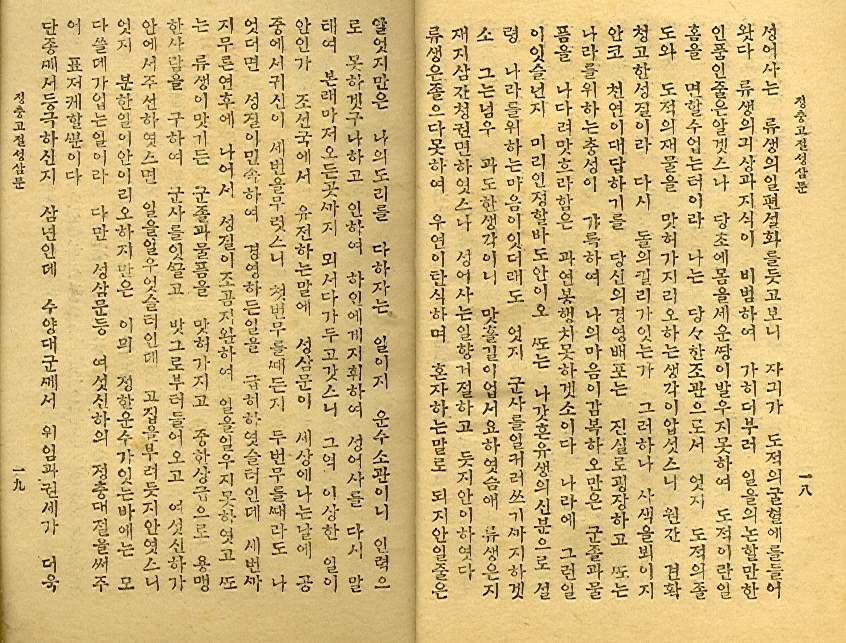 졍충고졀셩삼문
一八
셩어사는 류생의일편셜화를듯고보니 자긔가 도적의굴혈에를들어
왓다 류생의긔상과지식이 비범하여 가히더부러 일을의논할만한
인품인줄은알겟스나 당초에몸을세운쌍이발우지못하여 도적이란일
홈을 면할수업는터이라 나는 당々한조관으로서 엇지 도적의졸
도와 도적의재물을 맛허가지리오하는생각이압섯스니 원간 견확
청고한성질이라 다시 돌의낄리가잇는가 그러하나 사생을뵈이지
안코 천연이대답하기를 당신의경영배포는 진실로굉장하고 또는
나라를위하는충성이 갸륵하여 나의마음이감복하오만은 군졸과물
품을 나다려맛흐라함은 과연봉행치못하겟소이다 나라에 그런일
이잇슬넌지 미리인정할바도안이오 또는 나갓흔유생의신분으로 설
령 나라를위하는마음이잇더래도 엇지 군사를일귀러쓰기까지하겟
소 그는넘우 과도한생각이니 맛흘길이업서요하엿슴애 류생은지
재지삼간청권면하엿스나 성어사는일향거절하고 듯지안이하엿다
류생은졸으다못하여 우연이탄식하며 혼자하는말로 되지안일줄은
알엇지만은 나의도리를 다하자는 일이지 운수소관이니 인력으
로 못하겟구나하고 인하여 하인에게지휘하여 성어사를 다시 말
태여 본래마저오든곳까지 뫼서다가두고갓스니 그역 이상한 일이
안인가 조선국에서 유전하는말에 성삼문이 세상에나는날에 공
중에서귀신이 세번을무럿스니 첫번무를때든지 두번무를때라도 나
엇더면 성질이민쇽하여 경영하든일을 급히하엿슬터인데 세번까
지무른연후에 나어서 성질이조곰지완하여 일을일우지못하엿고 또
는 류생이맛기든 군졸과물품을 맛허가지고 중한상급으로 용맹
한사람을 구하여 군사를잇끌고 밧그로부터들어오고 여섯신하가
안에서주선하엿스면 일을일우엇슬터인데 고집을부려듯지안엿스니
엇지 분한일이안이리오하지만은 이믜 정한운수가잇는바에는 모
다쓸데가업는일이라 다만 성삼문등 여섯신하의 정충대절을써주
어 표저케할뿐이다
단종께서등극하신지 삼년인데 수양대군께서 위임과권세가 더욱
졍충고졀셩삼문
一九